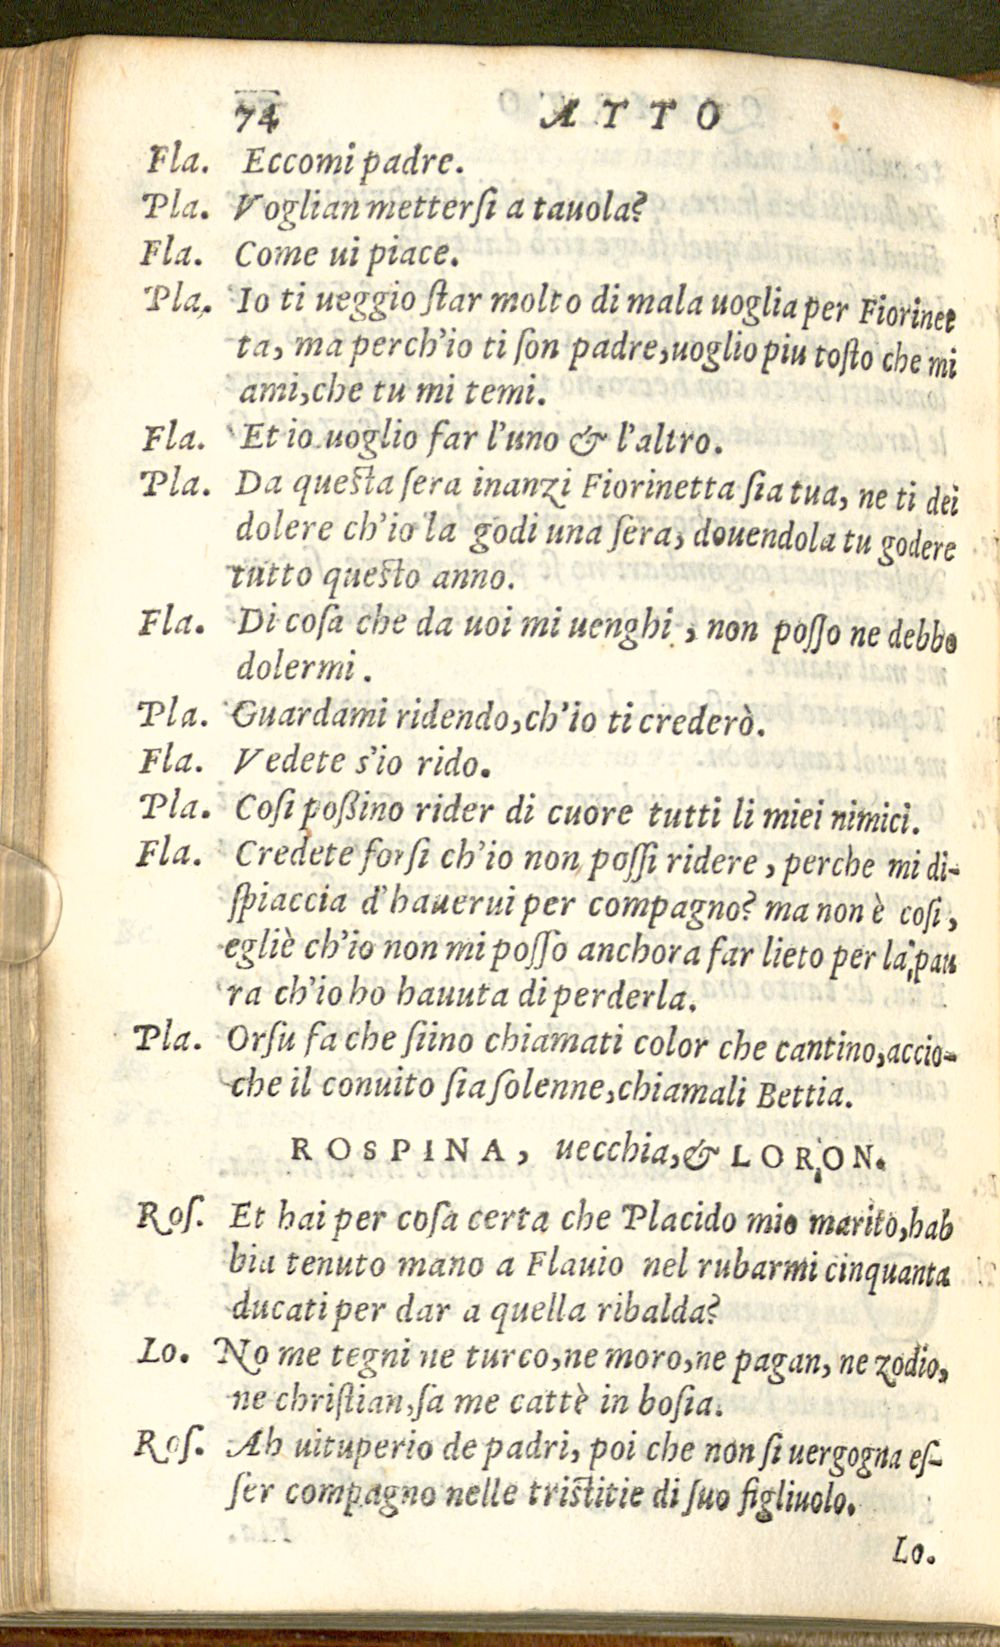 74 ATTO
Fla. Eccomi padre.
Pla. Voglian metterſi a tauola?
Fla. Come ui piace.
Pla. Io ti ueggio ſtar molto di mala uoglia per Fiorinet
ta, ma perch'io ti ſon padre,uoglio piu toſto che mi
ami,che tu mi temi.
Fla. Et io uoglio far l'uno & l'altro.
Pla. Da queſta ſera inanzi Fiorinetta ſia tua, ne ti dei
dolere ch'io la godi una ſera, douendola tu godere
tutto queſto anno.
Fla. Di coſa che da uoi mi uenghi , non poſſo ne debbo
dolermi .
Pla. Guardami ridendo,ch'io ti crederò.
Fla. Vedete s'io rido.
Pla. Coſi poßino rider di cuore tutti li miei nimici.
Fla. Credete forſi ch'io non poſſi ridere , perche mi di-
ſpiaccia d'hauerui per compagno? ma non è coſi,
egliè ch'io non mi poſſo anchora far lieto per la pau
ra ch'io ho hauuta di perderla.
Pla. Orſu fa che ſiino chiamati color che cantino,accio-
che il conuito ſia ſolenne,chiamali Bettia.
ROSPINA, uecchia,& LORON.
Roſ. Et hai per coſa certa che Placido mio marito,hab
bia tenuto mano a Flauio nel rubarmi cinquanta
ducati per dar a quella ribalda?
Lo. No me tegni ne turco,ne moro,ne pagan, ne zodio,
ne chriſtian,ſa me cattè in boſia.
Roſ. Ah uituperio de padri, poi che non ſi uergogna eſ-
ſer compagno nelle triſtitie di ſuo figliuolo.
Lo.